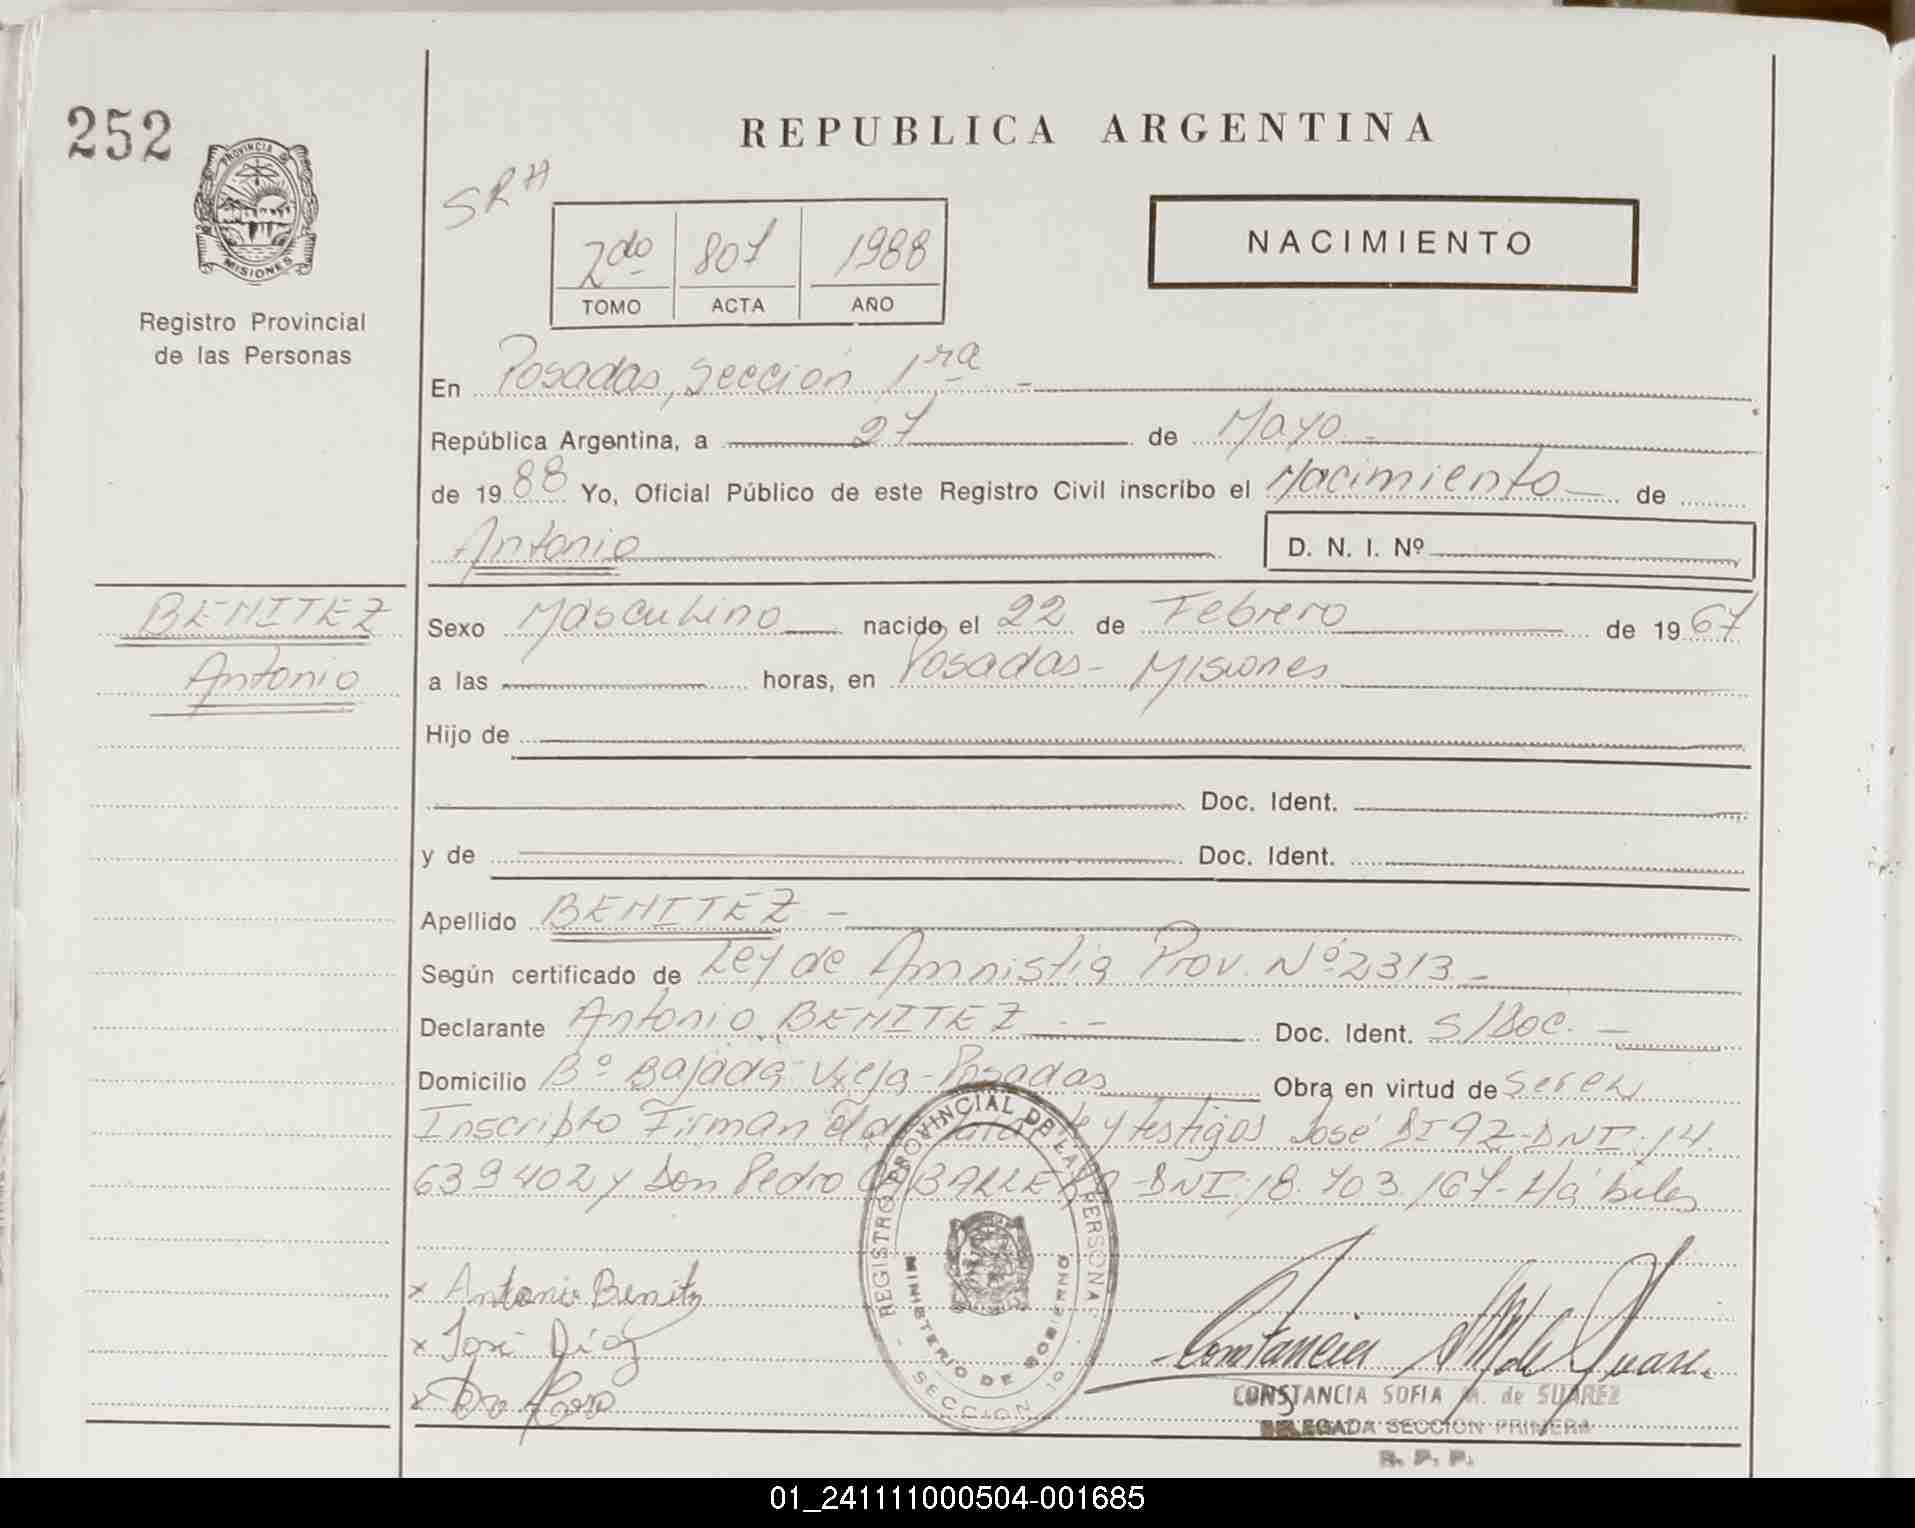 252
PROVINCIA DE
MISIONES
Registro Provincial
de las Personas
REPUBLICA ARGENTINA
SRH
2do 807 1988
TOMO ACTA AÑO
NACIMIENTO
En Posadas, Sección 1ra -
República Argentina, a 27 de Mayo -
de 1988 Yo, Oficial Público de este Registro Civil inscribo el Nacimiento de
Antonio D. N. I. Nº
BENITEZ
Antonio
Sexo Masculino nacido el 22 de Febrero de 1967
a las horas, en Posadas - Misiones
Hijo de
Doc. Ident.
y de Doc. Ident.
Apellido BENITEZ -
Según certificado de Ley de Amnistia Prov. Nº 2313 -
Declarante Antonio BENITEZ - - Doc. Ident. S/Doc. -
Domicilio Bº Bajada Vieja - Posadas Obra en virtud de ser el
Inscripto Firman el declarante y testigos José DIAZ - DNI. 14.
639402 y Don Pedro - DNI. 18.703.167 - Hábiles
REGISTRO PROVINCIAL DE LAS PERSONAS
MINISTERIO DE GOBIERNO
- SECCION 1º -
x Antonio Benitz
x José Díaz
x
Constancia S M de Suarez
CONSTANCIA SOFIA M. de SUAREZ
DELEGADA SECCION PRIMERA
R. P. P.
01_241111000504-001685